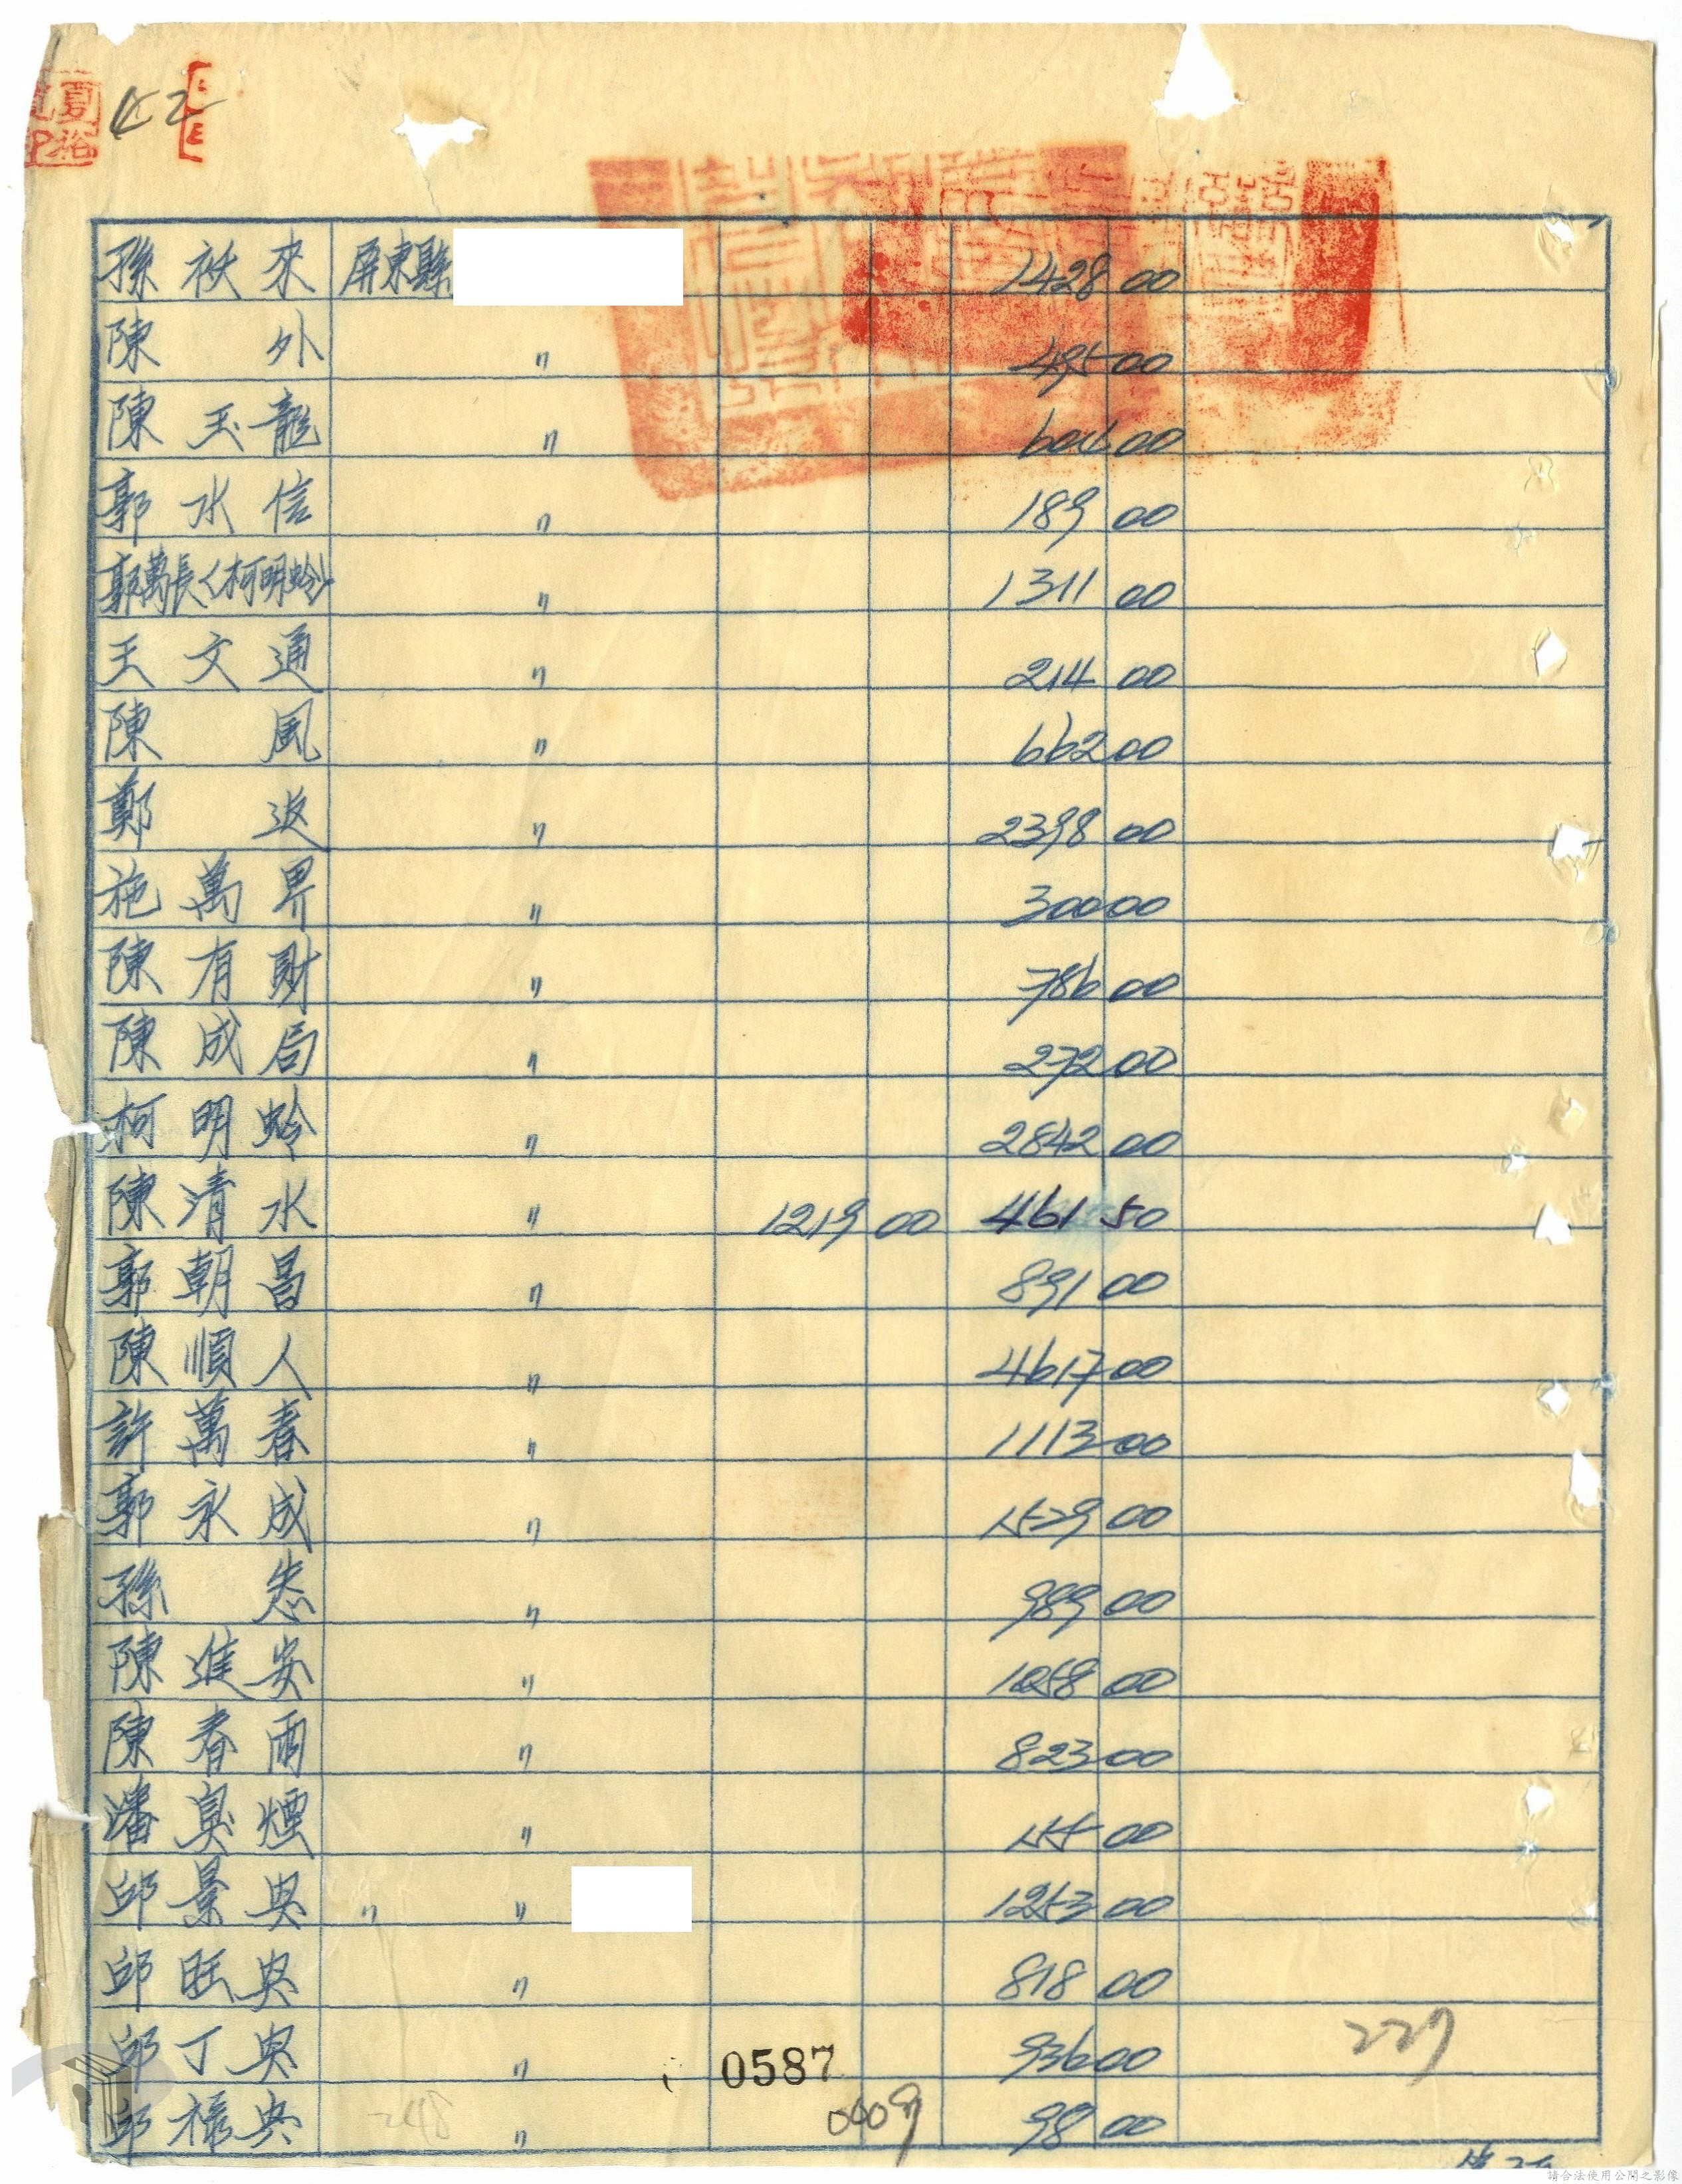 42
孫 衭 來 屏東縣 1428 00
陳 外 〃 495 00
陳 玉 龍 〃 00
郭 水 信 〃 189 00
郭萬長(柯明蛉) 〃 1311 00
王 文 通 〃 214 00
陳 風 〃 662 00
鄭 返 〃 2398 00
施 萬 界 〃 300 00
陳 有 財 〃 786 00
陳 成 局 〃 272 00
柯 明 蛉 〃 2842 00
陳 清 水 〃 1219 00 461 50
郭 朝 昌 〃 891 00
陳 順 人 〃 4617 00
許 萬 春 〃 1113 00
郭 永 成 〃 1529 00
孫 〃 989 00
陳 進 安 〃 1058 00
陳 春 雨 〃 823 00
潘 臭 煙 〃 155 00
邱 景 興 〃 〃 1253 00
邱 旺 興 〃 818 00
邱 丁 興 〃 0587 936 00 227
邱 祿 興 248 〃 0409 98 00
請合法使用公開之影像